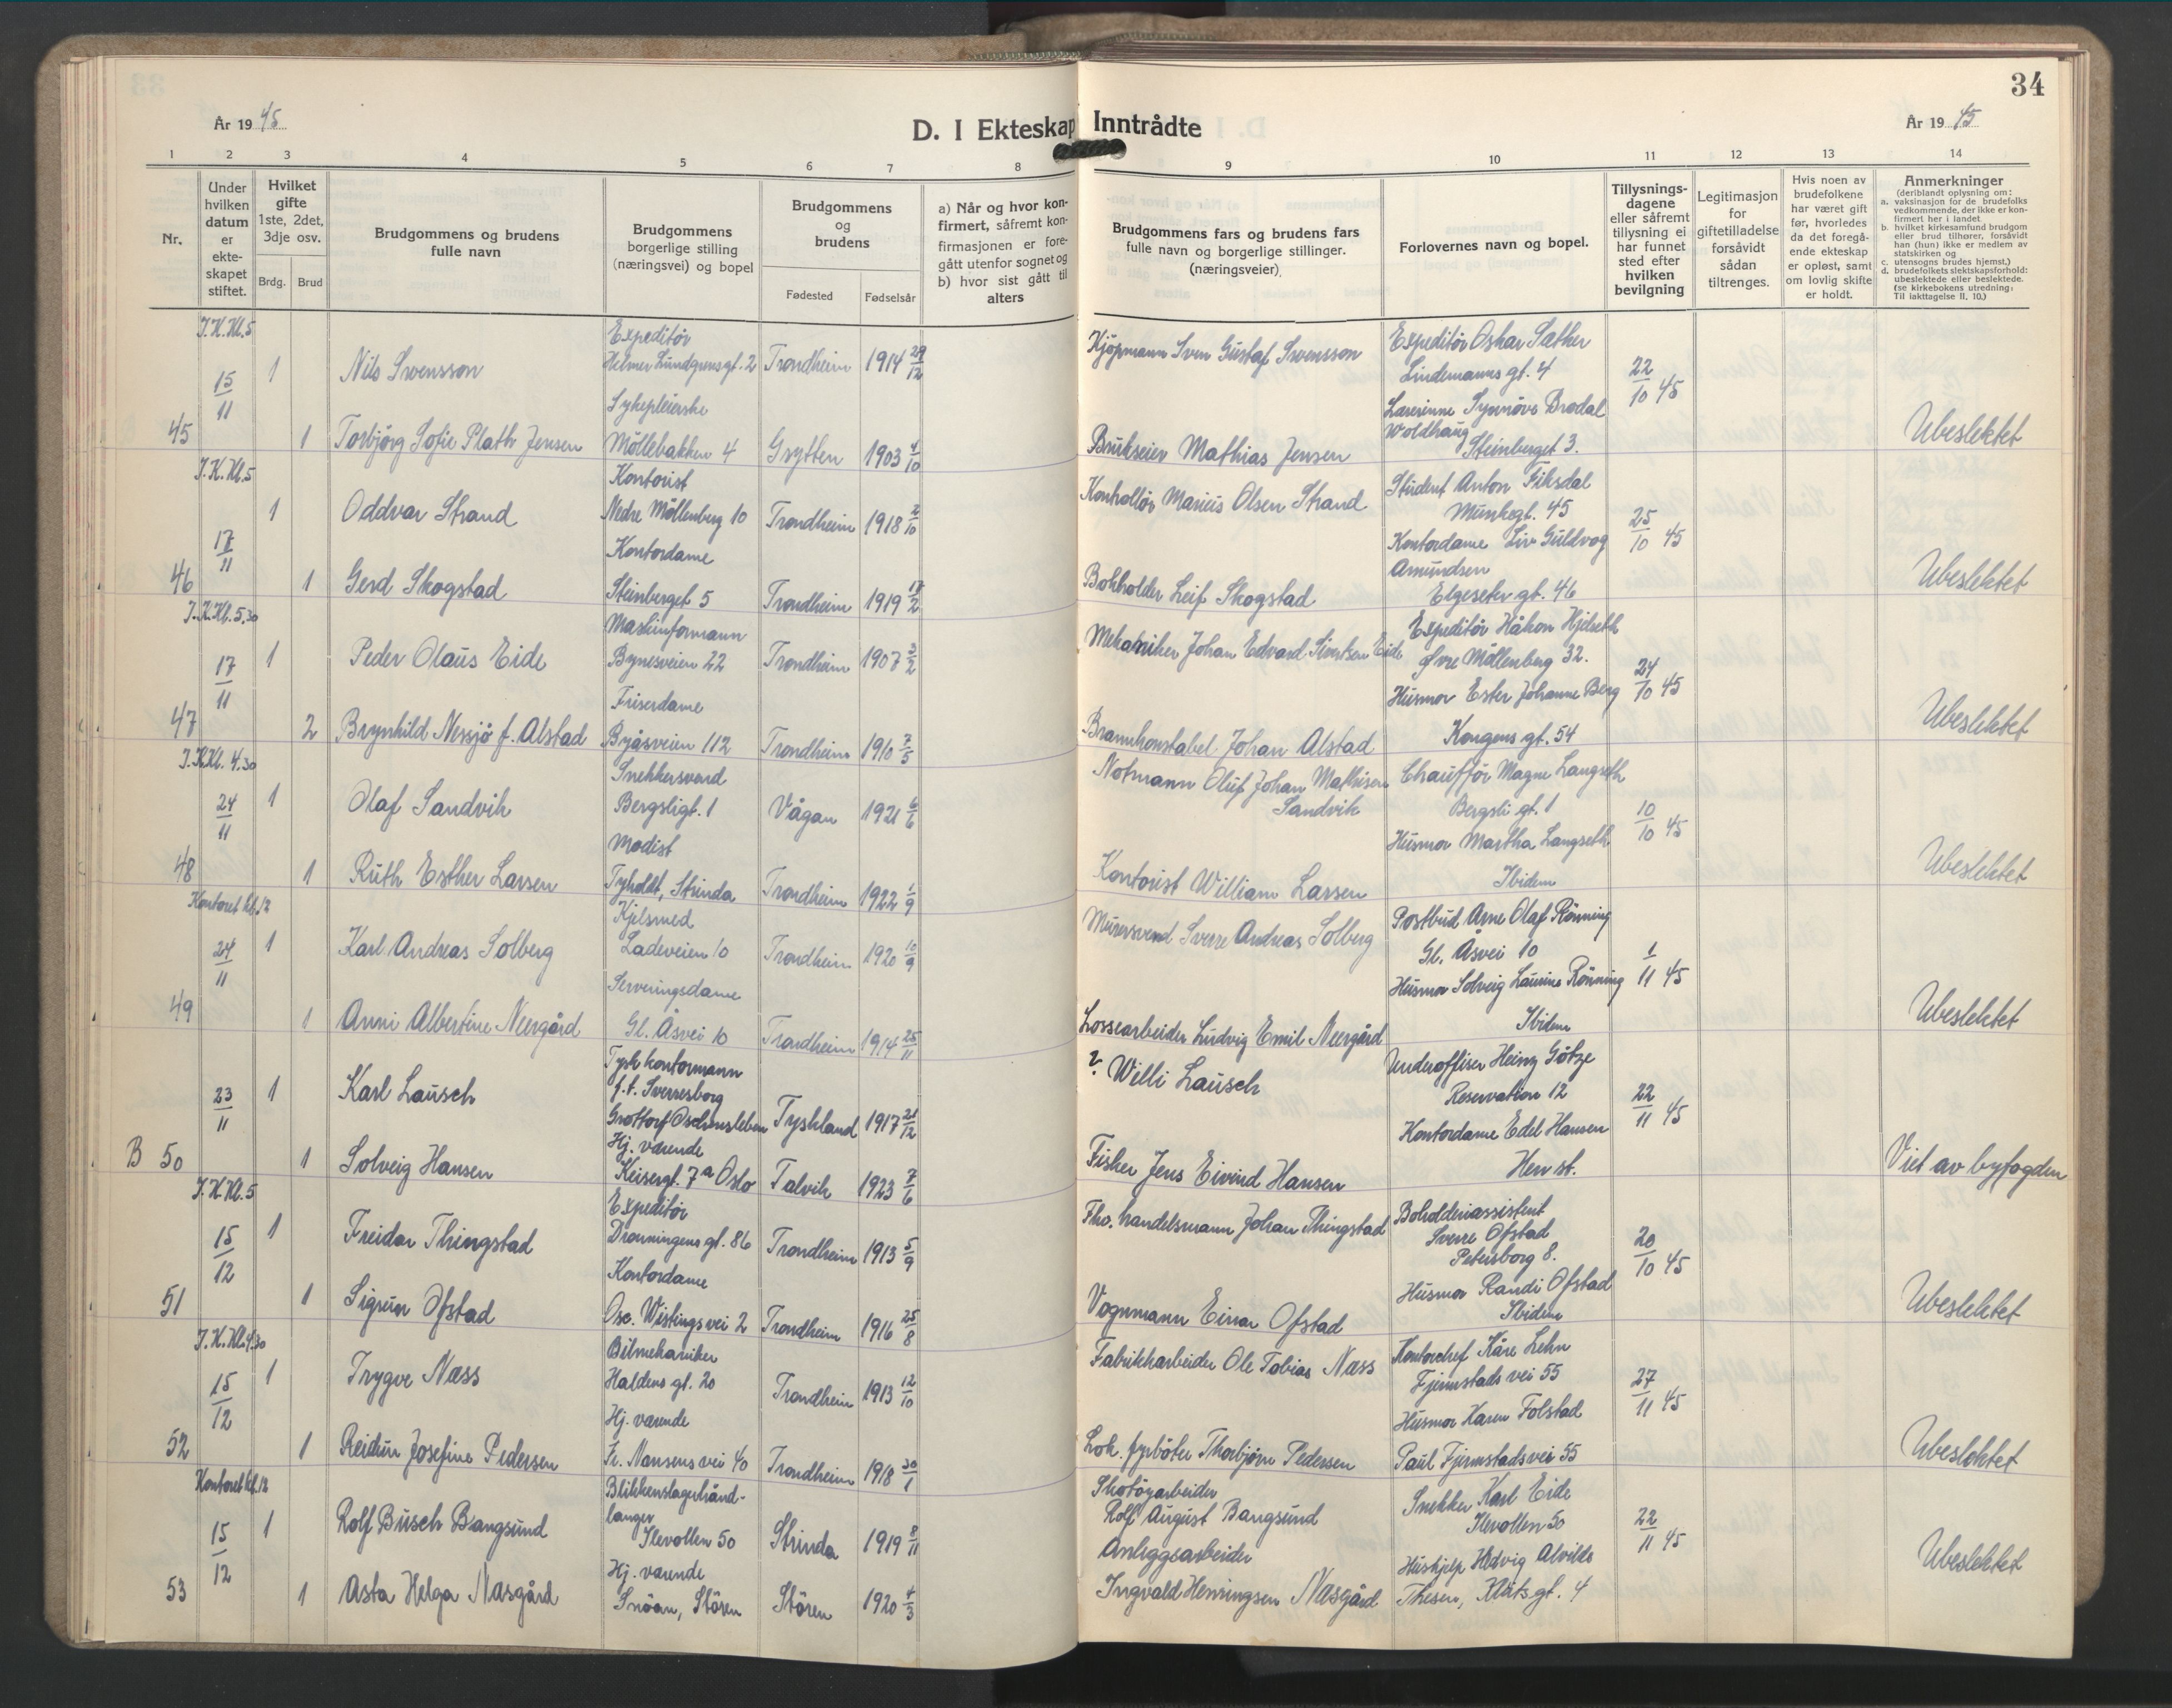 34
År 1945
D. I Ekteskap Inntrådte
År 1945
1 2 3 4 5 6 7 8 9 10 11 12 13 14
Nr.
Under hvilken datum er ekte-skapet stiftet.
Hvilket gifte 1ste, 2det, 3dje osv.
Brdg. Brud
Brudgommens og brudens fulle navn
Brudgommens borgerlige stilling (næringsvei) og bopel
Brudgommens og brudens
Fødested Fødselsår
a) Når og hvor kon-firmert, såfremt kon-firmasjonen er fore-gått utenfor sognet og
b) hvor sist gått til alters
Brudgommens fars og brudens fars fulle navn og borgerlige stillinger. (næringsveier),
Forlovernes navn og bopel.
Tillysnings-dagene eller såfremt tillysning ei har funnet sted efter hvilken bevilgning
Legitimasjon for giftetilladelse forsåvidt sådan tiltrenges.
Hvis noen av brudefolkene har været gift før, hvorledes da det foregå-ende ekteskap er opløst, samt om lovlig skifte er holdt.
Anmerkninger
(deriblandt oplysning om:
a. vaksinasjon for de brudefolks vedkommende, der ikke er kon-firmert her i landet.
b. hvilket kirkesamfund brudgom eller brud tilhører, forsåvidt han (hun) ikke er medlem av statskirken og
c. utensogns brudes hjemst.)
d. brudefolkets slektskapsforhold: ubeslektede eller beslektede. (se kirkebokens utredning: Til iakttagelse II, 10.)
I.K.Kl.5
15/11 1 Nils Svensson Expeditör Helmer Lundgrensgt. 2 Trondheim 1914 29/12 Kjöpmann Sven Gustaf Svensson Expeditör Oskar Sæther Lindemanns gt. 4 22/10 45
45 1 Torbjörg Sofie Plath Jensen Sykepleierske Möllebakken 4 Grytten 1903 4/10 Brukseier Mathias Jensen Lærerinne Synnöve Brodal Woldhaug Steinberget 3. Ubeslektet
I.K.Kl.5
17/11 1 Oddvar Strand Kontorist Nedre Möllenberg 10 Trondheim 1918 2/10 Kontrollör Marius Olsen Strand Student Anton Fiksdal Munkegt. 45 25/10 45
46 1 Gerd Skogstad Kontordame Steinberget 5 Trondheim 1919 17/2 Bokholder Leif Skogstad Kontordame Liv Guldvog Amundsen Elgeseter gt. 46 Ubeslektet
I.K.Kl.5.30
17/11 1 Peder Olaus Eide Maskinformann Bynesveien 22 Trondheim 1907 3/2 Mekaniker Johan Edvard Sivertsen Eide Expeditör Håkon Hjelseth Øvre Möllenberg 32. 24/10 45
47 2 Brynhild Nessjö f. Alstad Friserdame Byåsveien 112 Trondheim 1910 7/5 Brannkonstabel Johan Alstad Husmor Ester Johanne Berg Kongens gt. 54 Ubeslektet
I.K.Kl. 4.30
24/11 1 Olaf Sandvik Snekkersvend Bergsligt. 1 Vågan 1921 6/6 Notmann Oluf Johan Mathisen Sandvik Chaufför Magne Langseth Bergsli gt. 1 10/10 45
48 1 Ruth Esther Larsen Modist Tyholdt, Strinda Trondheim 1922 1/9 Kontorist William Larsen Husmor Martha Langseth Ibidem Ubeslektet
Kontoret kl.12
24/11 1 Karl Andreas Solberg Kjelsmed Ladeveien 10 Trondheim 1920 10/9 Murersvend Sverre Andreas Solberg Postbud Arne Olaf Rönning Gl. Åsvei 10 1/11 45
49 1 Anni Albertine Neergård Serveringsdame Gl. Åsvei 10 Trondheim 1914 25/11 Lossearbeider Ludvig Emil Neergård Husmor Solveig Laurine Rönning Ibidem Ubeslektet
23/11 1 Karl Lausch Tysk kontormann f.t. Sverresborg Grottorf Oschersleben Tyskland 1917 21/12 ? Willi Lausch Underoffiser Heinz Götze Reservation 12 22/11 45
B 50 1 Solveig Hansen Hj. værende Keisergt. 7a Oslo Talvik 1923 7/6 Fisker Jens Eivind Hansen Kontordame Edel Hansen Her st. Viet av byfogden
I.K.Kl.5
15/12 1 Freidar Thingstad Expeditör Dronningens gt. 86 Trondheim 1913 5/9 Fho. handelsmann Johan Thingstad Bokholderiassistent Sverre Ofstad Petersborg 8. 20/10 45
51 1 Sigrun Ofstad Kontordame Osc. Wistings vei 2 Trondheim 1916 25/8 Vognmann Einar Ofstad Husmor Randi Ofstad Ibidem Ubeslektet
I.K.Kl.4.30
15/12 1 Trygve Næss Bilmekaniker Haldens gt. 20 Trondheim 1913 12/10 Fabrikkarbeider Ole Tobias Næss Kontorchef Kåre Lehn Fjermstads vei 55 27/11 45
52 1 Reidun Josefine Pedersen Hj. værende Fr. Nansens vei 40 Trondheim 1918 30/1 Lok. fyrböter Thorbjørn Pedersen Husmor Karen Folstad Paul Fjermstadsvei 55 Ubeslektet
Kontoret kl.12
15/12 1 Rolf Busch Bangsund Blikkenslagerhånd-langer Ilevollen 50 Strinda 1919 8/11 Skotöyarbeider Rolf August Bangsund Snekker Karl Eide Ilevollen 50 22/11 45
53 1 Asta Helga Næsgård Hj. værende Snöan, Stören Stören 1920 4/3 Anleggsarbeider Ingvald Henningsen Næsgård Hushjelp Hedvig Alvilde Thesen, Klæts gt. 4 Ubeslektet